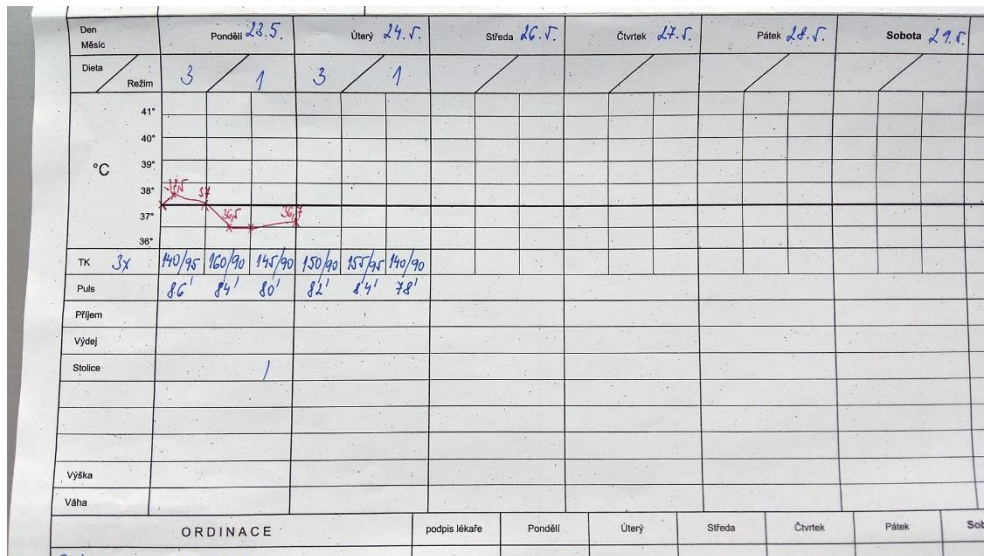 Den
Měsíc
Pondělí 23.5. Úterý 24.5. Středa 26.5. Čtvrtek 27.5. Pátek 28.5. Sobota 29.5.
Dieta
Režim
3 1 3 1
°C
41°
40°
39°
38°
37°
36°
37,5 37 36,5 36,7
TK 3x 140/95 160/90 145/90 150/90 155/95 140/90
Puls 86' 84' 80' 82' 84' 78'
Příjem
Výdej
Stolice /
Výška
Váha
ORDINACE podpis lékaře Pondělí Úterý Středa Čtvrtek Pátek